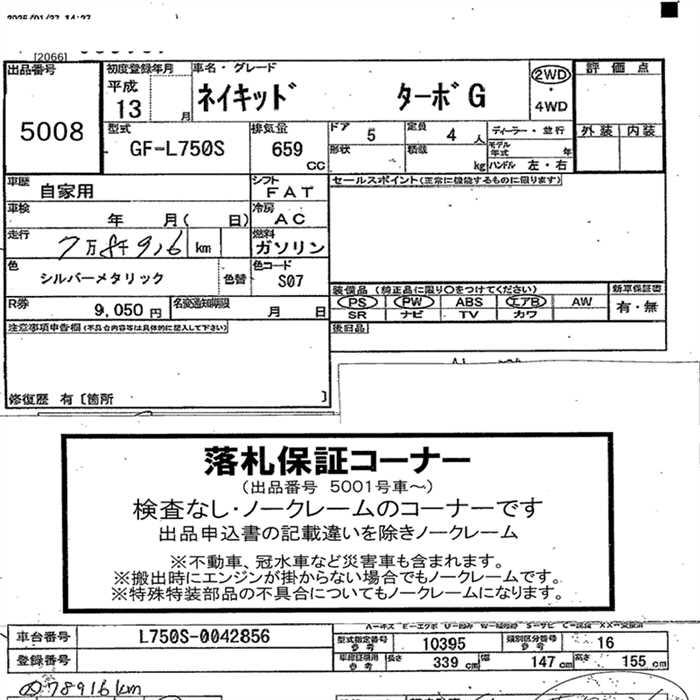 2025/01/27 14:27
[2066]
出品番号 初度登録年月 車名・グレード 評価点
5008 平成 13 月 ネイキッド ターボG 2WD・4WD
型式 排気量 ドア 5 定員 4人 ディーラー・並行 外装 内装
GF-L750S 659 CC 形状 積載 kg モデル年式 年 ハンドル 左・右
車歴 自家用 シフト FAT セールスポイント(正常に機能するものに限ります)
車検 年 月( 日) 冷房 AC
走行 7万8千916 km 燃料 ガソリン
色 シルバーメタリック 色替 色コード S07
装備品 (純正品に限り〇をつけてください) 新車保証書
R券 9,050円 名変通知期限 月 日 PS PW ABS エアB AW 有・無
SR ナビ TV カワ
注意事項申告欄(不具合内容等は具体的に記入して下さい) 後日品
修復歴 有〔箇所 〕
落札保証コーナー
(出品番号 5001号車~)
検査なし・ノークレームのコーナーです
出品申込書の記載違いを除きノークレーム
※不動車、冠水車など災害車も含まれます。
※搬出時にエンジンが掛からない場合でもノークレームです。
※特殊特装部品の不具合についてもノークレームになります。
車台番号 L750S-0042856 型式指定番号 参考 10395 類別区分番号 参考 16
登録番号 車検証積用 参考 長さ 339 cm 幅 147 cm 高さ 155 cm
78916km